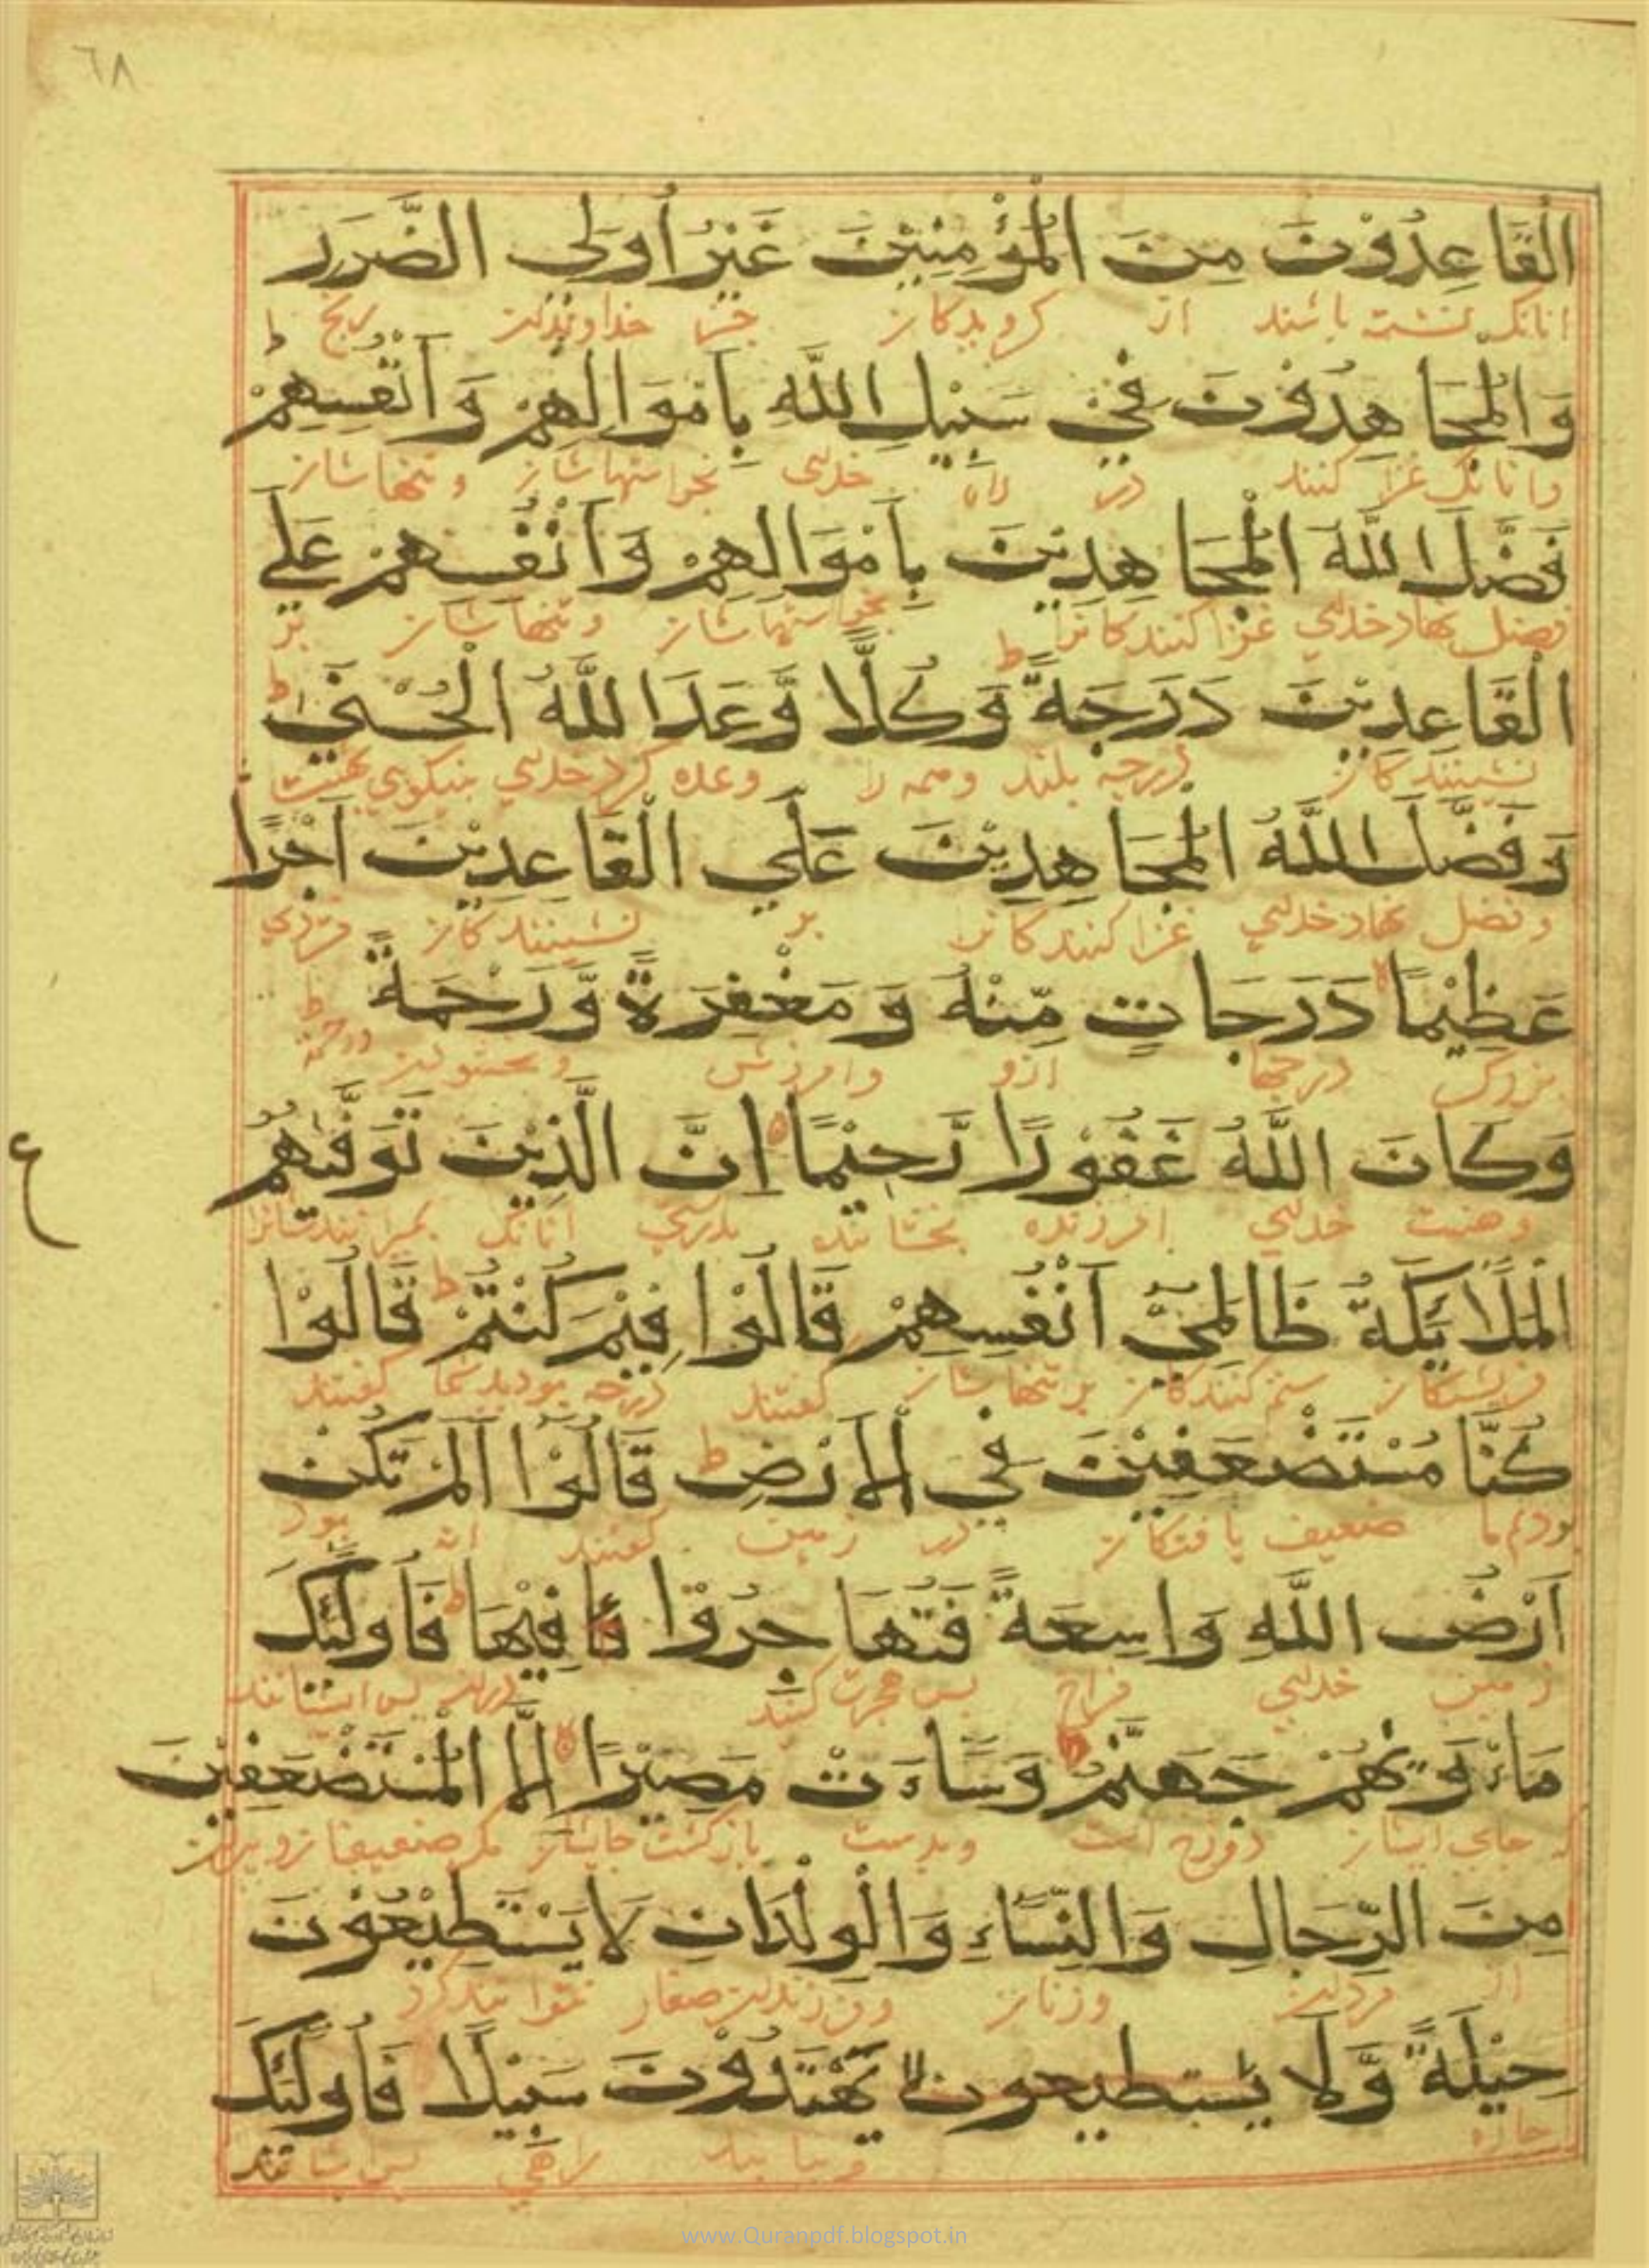 ٦٨
الْقَاعِدُوْنَ مِنَ الْمُؤْمِنِيْنَ غَيْرُ اُولِي الضَّرَرِ
انانک نشسته باشند از کرویدکان جز خداوندان رنج
وَالْمُجَاهِدُوْنَ فِيْ سَبِيْلِ اللَّهِ بِاَمْوَالِهِمْ وَاَنْفُسِهِمْ ط
وانانک غزا کنند در راه خدای بخواستهاشان و تنهاشان
فَضَّلَ اللَّهُ الْمُجَاهِدِيْنَ بِاَمْوَالِهِمْ وَاَنْفُسِهِمْ عَلَي
فضل نهاد خدای غزا کنندکانرا بخواستهاشان و تنهاشان بر
الْقَاعِدِيْنَ دَرَجَةً ط وَكُلًّا وَّعَدَ اللَّهُ الْحُسْنٰي ط
نشینندکان درجه بلند وهمه را وعده کرد خدای نیکوي بهشت
وَفَضَّلَ اللَّهُ الْمُجَاهِدِيْنَ عَلَي الْقَاعِدِيْنَ اَجْرًا
وفضل نهاد خدای غزا کنندکانرا بر نشینندکان مزدي
عَظِيْمًا لا دَرَجَاتٍ مِّنْهُ وَمَغْفِرَةً وَّرَحْمَةً ط
بزرک درجها ازو وامرزش
وَكَانَ اللَّهُ غَفُوْرًا رَّحِيْمًا اِنَّ الَّذِيْنَ تَوَفّٰىهُمُ
وهست خدای امرزنده بخشاینده بدرستي انانک بمیرانندشان
ع
الْمَلَائِكَةُ ظَالِمِيْٓ اَنْفُسِهِمْ قَالُوْا فِيْمَ كُنْتُمْ ط قَالُوْا
فریشتکان ستم کنندکان بر تنهاشان کفتند درچه بودید شما کفتند
كُنَّا مُسْتَضْعَفِيْنَ فِي الْاَرْضِ ط قَالُوْٓا اَلَمْ تَكُنْ
بودیم ما ضعیف یافتکان در زمین کفتند انه بود
اَرْضُ اللَّهِ وَاسِعَةً فَتُهَاجِرُوْا فِيْهَا ط فَاُولٰئِكَ
زمین خدای فراخ پس هجرت کنید دران پس ایشانند
مَاْوٰىهُمْ جَهَنَّمُ ط وَسَاءَتْ مَصِيْرًا لا اِلَّا الْمُسْتَضْعَفِيْنَ
که جاي ایشان دوزخ است وبدست بازکشت جایشان مکر ضعیفان
مِنَ الرِّجَالِ وَالنِّسَاءِ وَالْوِلْدَانِ لَا يَسْتَطِيْعُوْنَ
از مردان وزنان وفرزندان صغار نتوانند کرد
حِيْلَةً وَّلَا يستطيعون لا يَهْتَدُوْنَ سَبِيْلًا فَاُولٰئِكَ
چاره راهي پس ایشانند
www.Quranpdf.blogspot.in